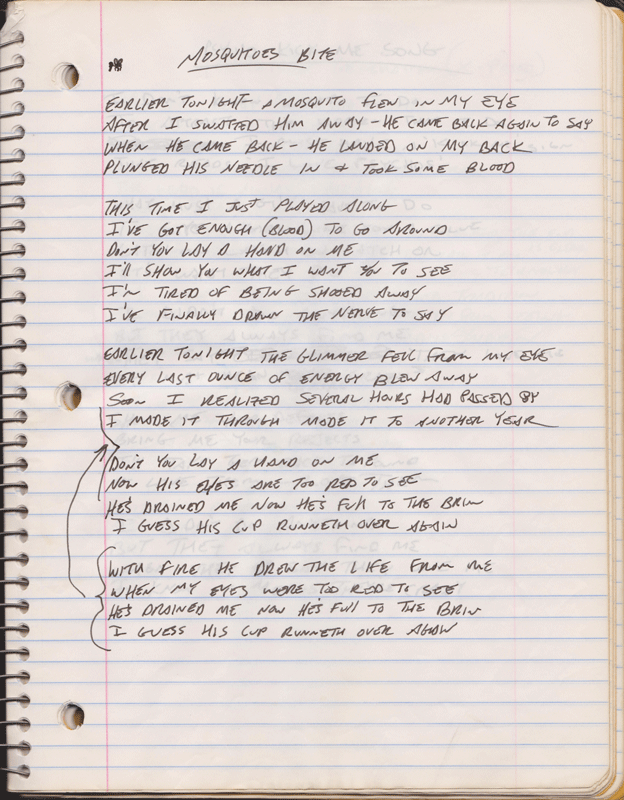 MOSQUITOES BITE
EARLIER TONIGHT A MOSQUITO FLEW IN MY EYE
AFTER I SWATTED HIM AWAY - HE CAME BACK AGAIN TO SAY
WHEN HE CAME BACK - HE LANDED ON MY BACK
PLUNGED HIS NEEDLE IN & TOOK SOME BLOOD
THIS TIME I JUST PLAYED ALONG
I'VE GOT ENOUGH (BLOOD) TO GO AROUND
DON'T YOU LAY A HAND ON ME
I'll SHOW YOU WHAT I WANT YOU TO SEE
I'M TIRED OF BEING SHOOED AWAY
I'VE FINALLY DRAWN THE NERVE TO SAY
EARLIER TONIGHT THE GLIMMER FELL FROM MY EYE
EVERY LAST OUNCE OF ENERGY BLEW AWAY
SOON I REALIZED SEVERAL HOURS HAD PASSED BY
I MADE IT THROUGH MADE IT TO ANOTHER YEAR
DON'T YOU LAY A HAND ON ME
NOW HIS EYES ARE TOO RED TO SEE
HE'S DRAINED ME NOW HE'S FULL TO THE BRIM
I GUESS HIS CUP RUNNETH OVER AGAIN
WITH FIRE HE DREW THE LIFE FROM ME
WHEN MY EYES WERE TOO RED TO SEE
HE'S DRAINED ME NOW HE'S FULL TO THE BRIM
I GUESS HIS CUP RUNNETH OVER AGAIN